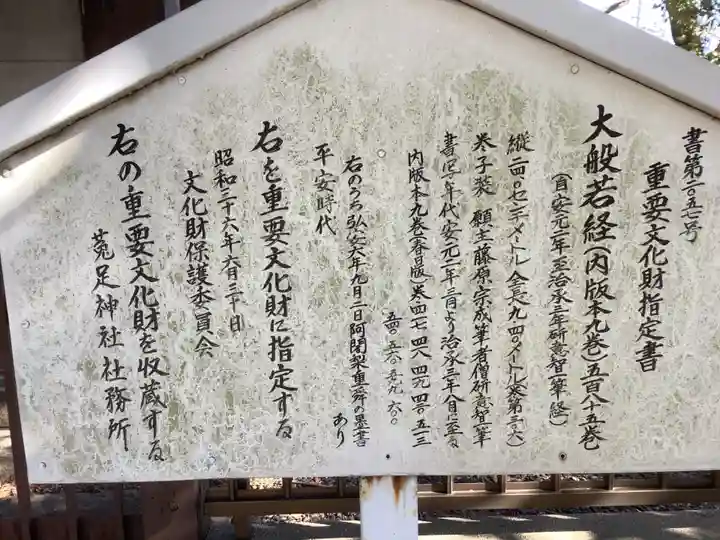 書第一〇五七号
重要文化財指定書
大般若経(内版本九巻)五百八十五巻
(自安元二年至治承三年研意智筆経)
縦二四・〇センチメートル 全長九・四〇メートル(巻第三〇六)
巻子装 願主藤原宗成筆者僧研意智筆
書写年代安元二年二月より治承三年八月に至る
内版本九巻(春日版)巻四一七、四一八、四一九、四二〇、五一三
五四〇、五六〇、五九九、六〇〇
右のうち弘安六年九月二日阿闍梨重舜の墨書
あり
平安時代
右を重要文化財に指定する
昭和三十六年六月三十日
文化財保護委員会
右の重要文化財を収蔵する
菟足神社社務所